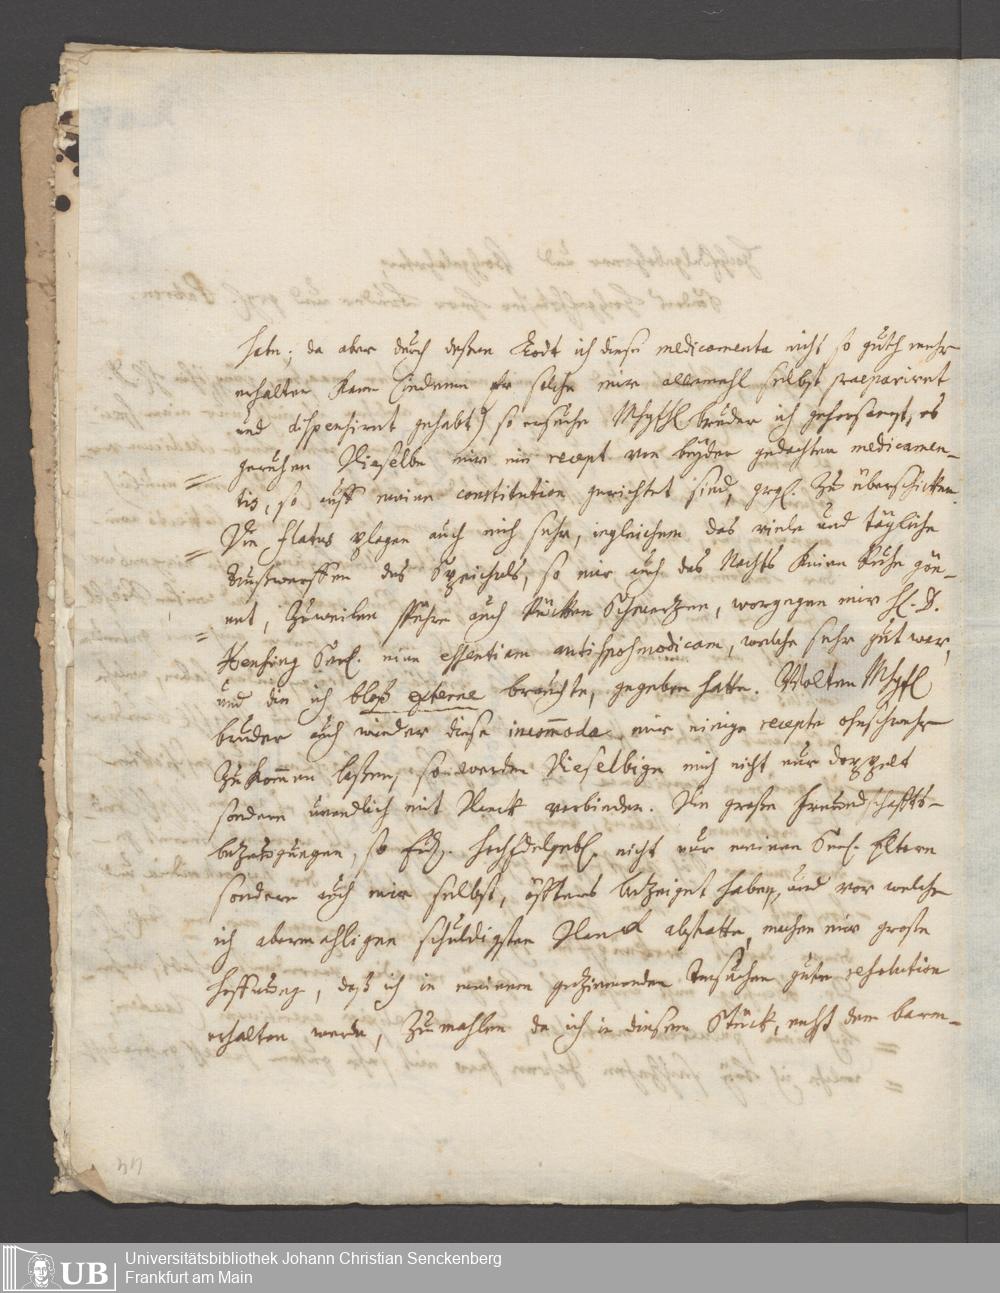 habe; da aber durch deßen Todt ich diese medicamenta nicht so guth mehr
erhalten kann (indeme er solche mir allemahl selbst praepariret
und dispensiret gehabt) so ersuche bruder ich gehorsamst, es
geruhen Dieselbe mir ein recept von beyden gedachten medicamen-
tis, so auff meine constitution gerichtet sind, grgst. zu überschicken.
Die flatus plagen auch mich sehr, ingleichem das viele und tägliche
Außwerffen des Speichels, so mir auch des Nachts keine Ruhe gön-
net, Zuweilen auch Rücken Schmertzen, worgegen mir H. D.
Hensing Seel. eine essentiam antispasmodicam, welche sehr gut war,
und die ich bloß externe brauchte, gegeben hatte. Wolten
bruder auch wieder diese incom̄oda mir einige recepte ohnschwehr
zukom̄en laßen, so werden Dieselbige mich nicht nur doppelt
sondern unendlich mit Danck verbinden. Die große Freundschaffts-
bezeugungen, so Hochedelgeb. nicht nur meinen Seel. Eltern
sondern auch mir selbst, öffters erzeiget haben, und vor welche
ich abermahligen schuldigsten Danck abstatte, machen mir große
Hoffnung, daß ich in meinem geziemenden Ersuchen gute resolution
erhalten werde, Zumahlen da ich in diesem Stück, nechst dem barm-
44
UB
Universitätsbibliothek Johann Christian Senckenberg
Frankfurt am Main